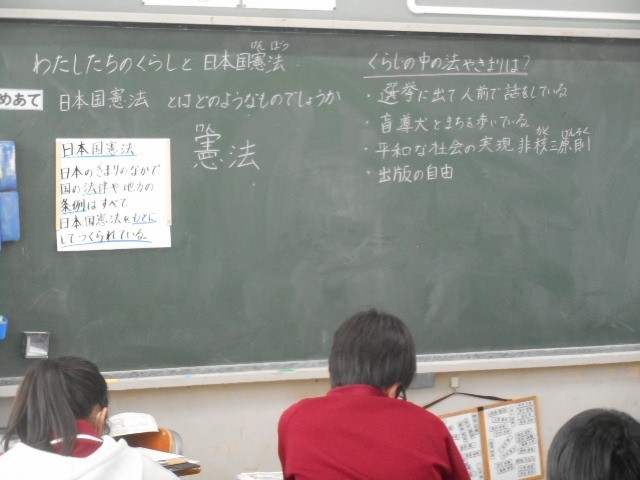 わたしたちのくらしと 日本国憲法
けん ぽう
めあて
日本国憲法 とはどのようなものでしょうか
けん
憲法
日本国憲法
日本のきまりのなかで
国の法律や地方の
条例はすべて、
日本国憲法をもとに
してつくられている。
くらしの中の法やきまりは?
・選挙に出て人前で話をしている
・盲導犬とまちを歩いている
・平和な社会の実現 非核三原則
かく げんそく
・出版の自由